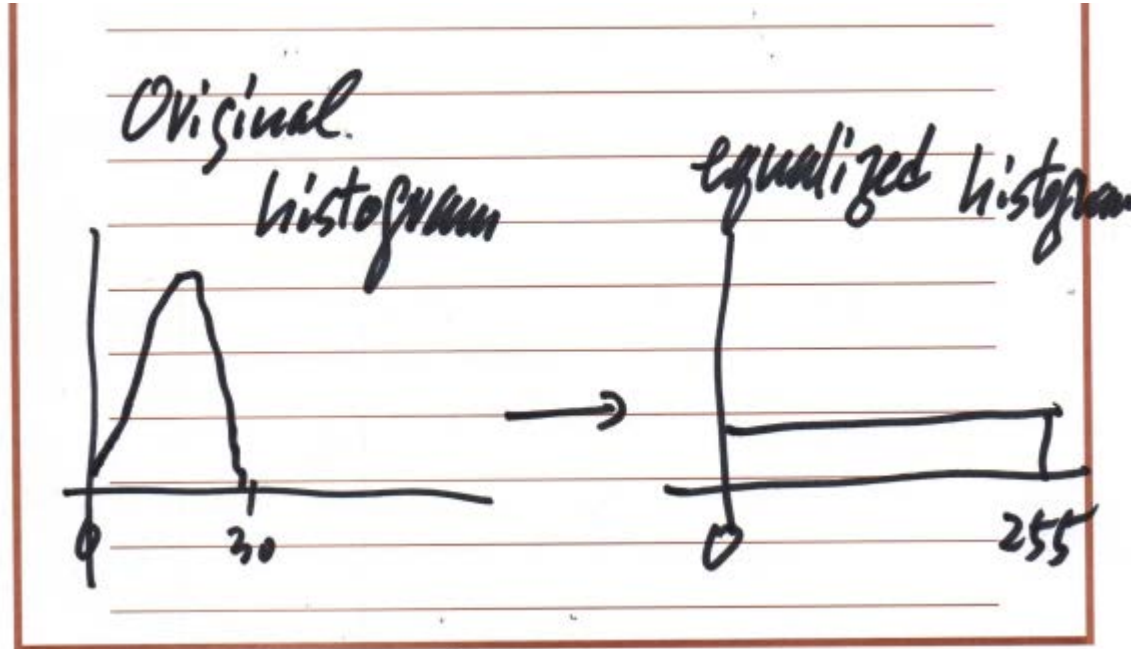 Original.
histogram
equalized histogram
0 30
0 255